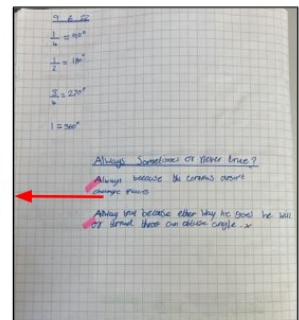 9.6.22
1/4 = 90°
1/2 = 180°
3/4 = 270°
1 = 360°
Always Sometimes or Never true?
Always because the corners doesn't
change
Always true because either way he goes he will
or turned three an obtuse angle.